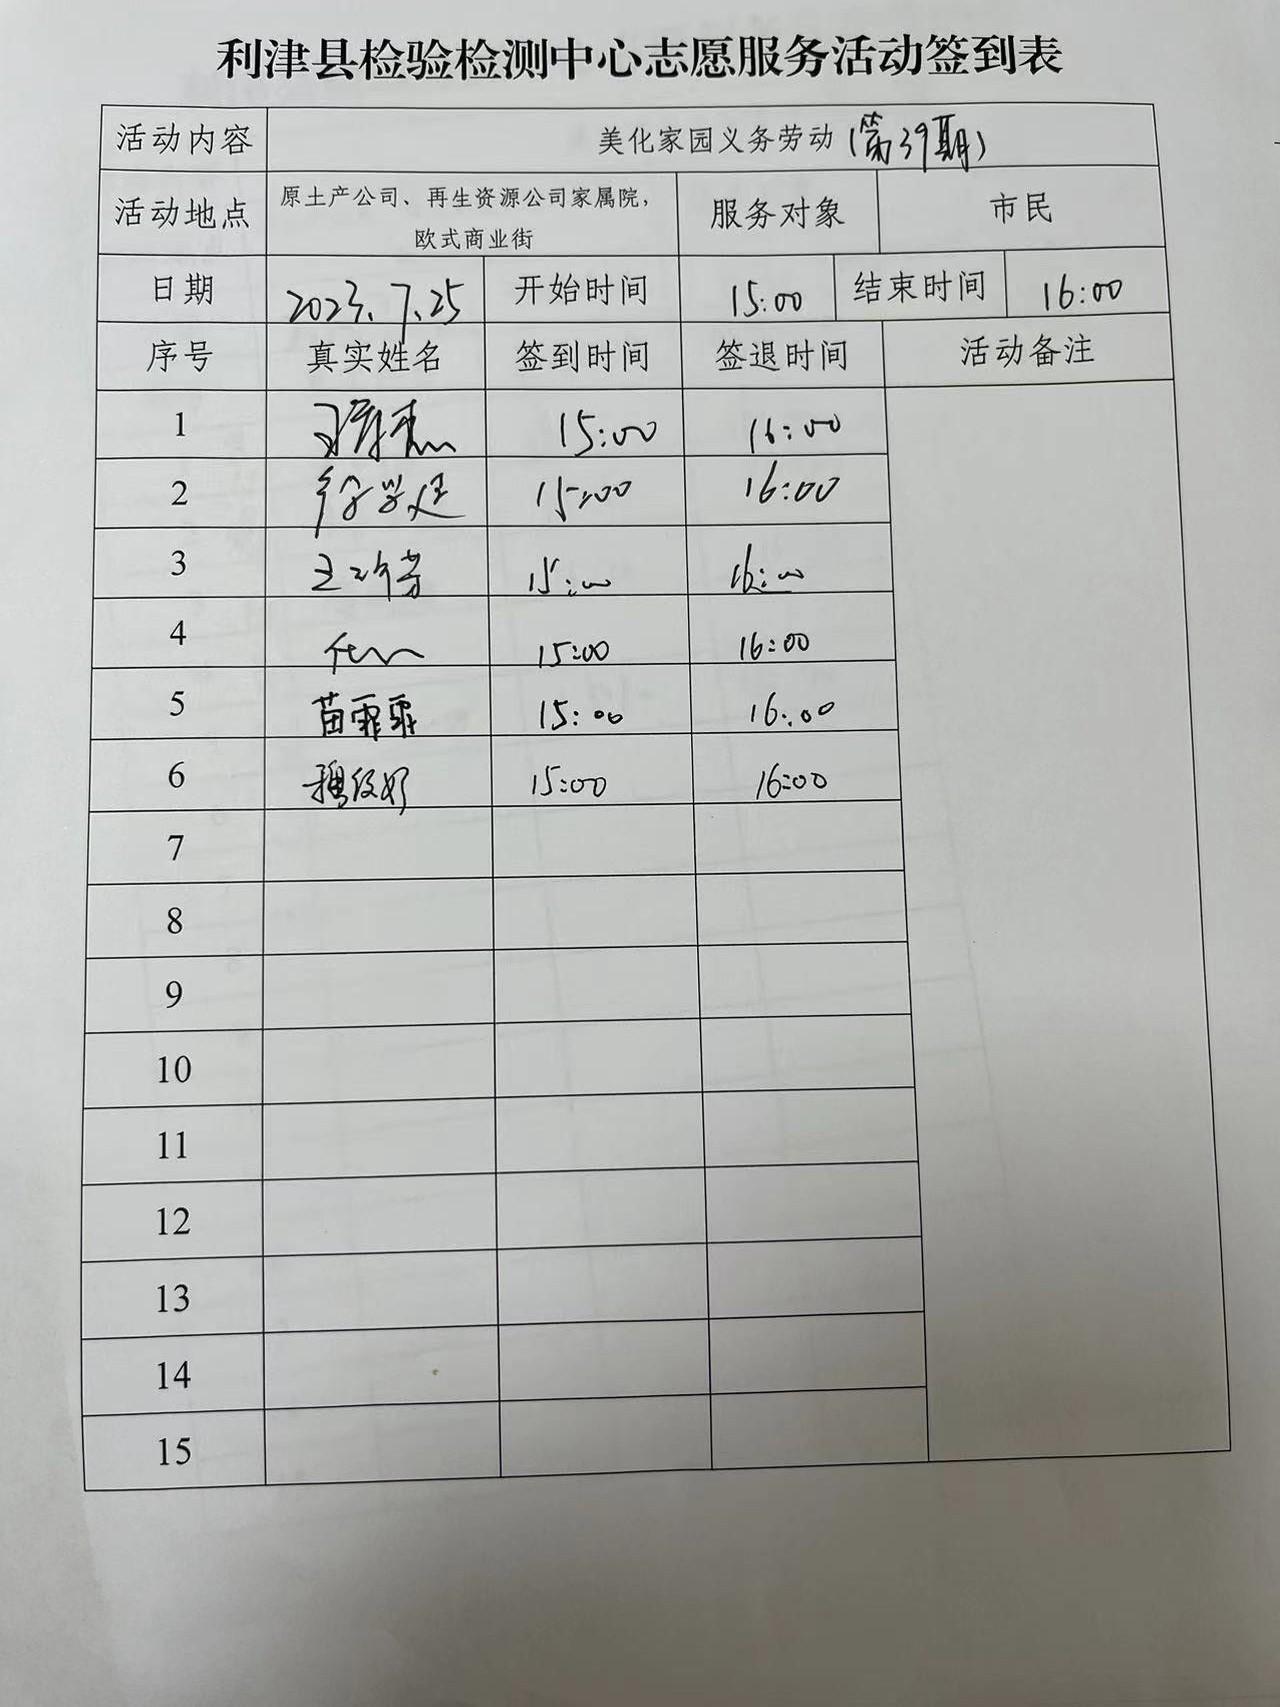 利津县检验检测中心志愿服务活动签到表
活动内容 美化家园义务劳动(第39期)
活动地点 原土产公司、再生资源公司家属院，
欧式商业街 服务对象 市民
日期 2023.7.25 开始时间 15:00 结束时间 16:00
序号 真实姓名 签到时间 签退时间 活动备注
1 15:00 16:00
2 15:00 16:00
3 15:00 16:00
4 15:00 16:00
5 苗霏霏 15:00 16:00
6 15:00 16:00
7
8
9
10
11
12
13
14
15